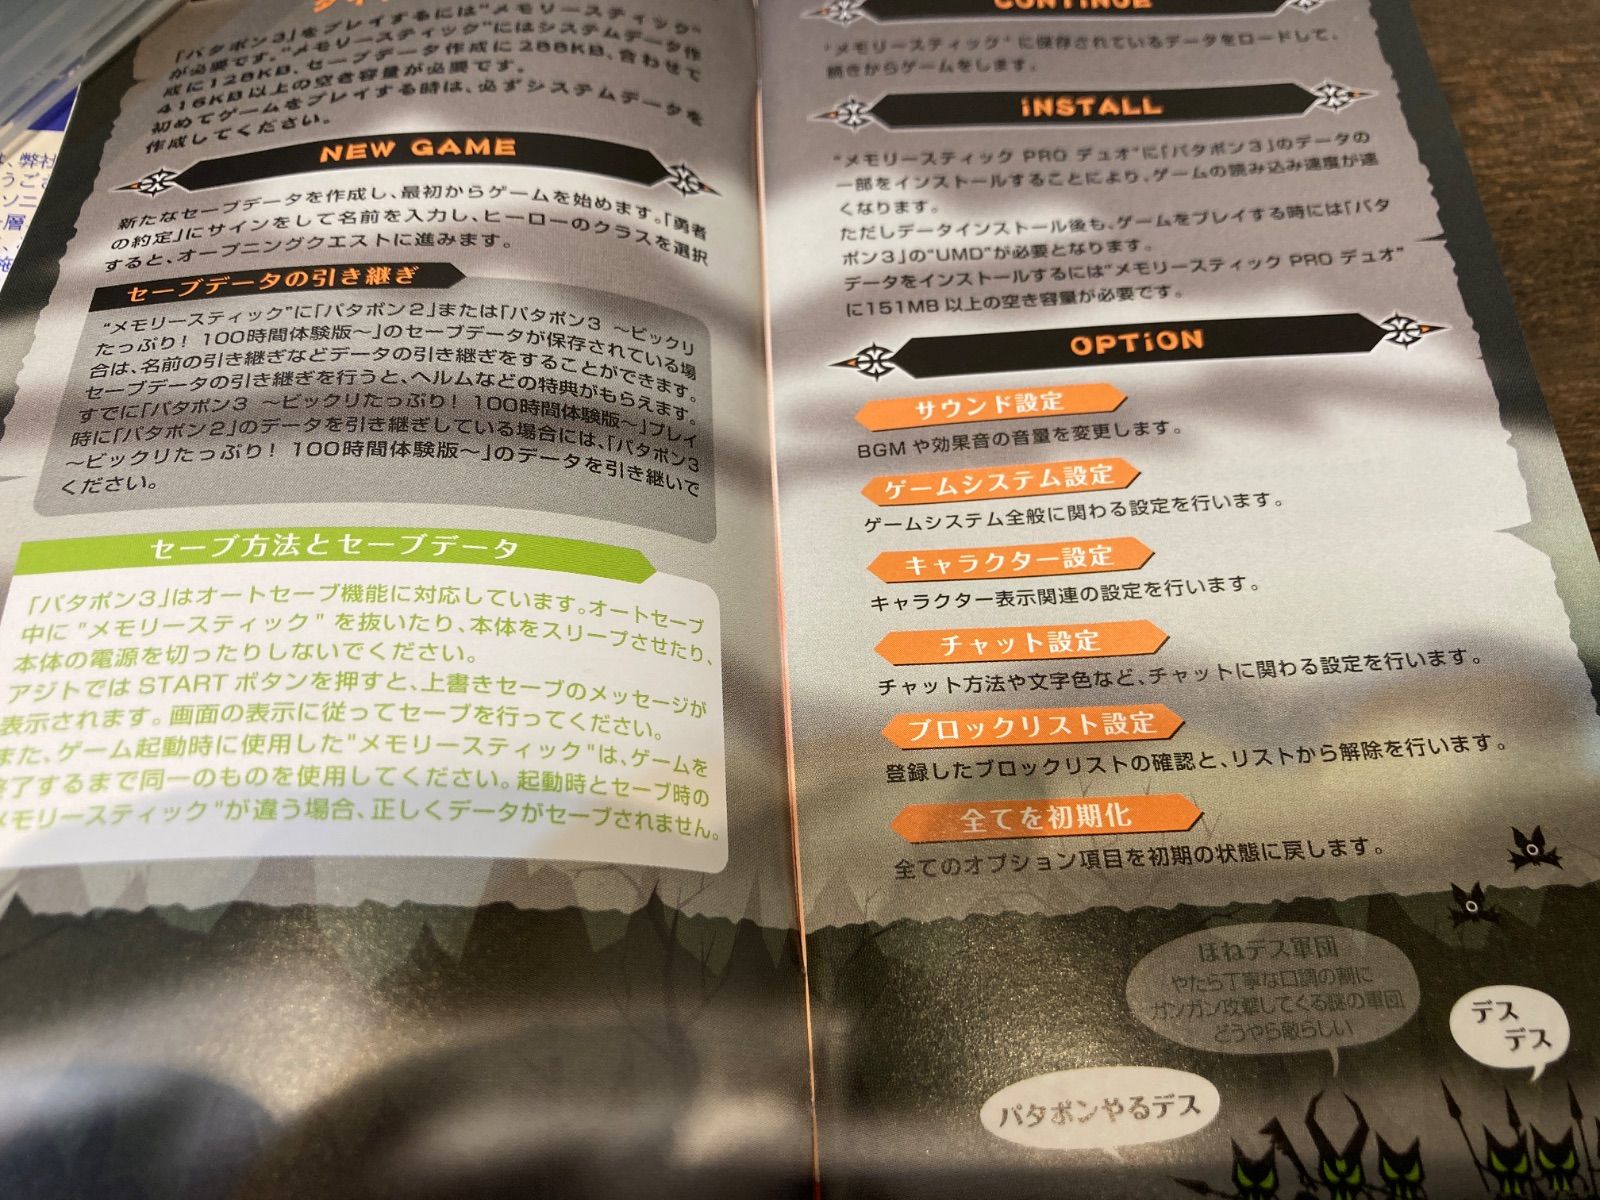 「パタポン3」をプレイするには“メモリースティック”
が必要です。“メモリースティック”にはシステムデータ作
成に128KB、セーブデータ作成に288KB、合わせて
416KB以上の空き容量が必要です。
初めてゲームをプレイする時は、必ずシステムデータを
作成してください。
NEW GAME
新たなセーブデータを作成し、最初からゲームを始めます。「勇者
の約定」にサインをして名前を入力し、ヒーローのクラスを選択
すると、オープニングクエストに進みます。
セーブデータの引き継ぎ
“メモリースティック”に「パタポン2」または「パタポン3 ～ビックリ
たっぷり! 100時間体験版～」のセーブデータが保存されている場
合は、名前の引き継ぎなどデータの引き継ぎをすることができます。
セーブデータの引き継ぎを行うと、ヘルムなどの特典がもらえます。
すでに「パタポン3 ～ビックリたっぷり! 100時間体験版～」プレイ
時に「パタポン2」のデータを引き継ぎしている場合には、「パタポン3
～ビックリたっぷり! 100時間体験版～」のデータを引き継いで
ください。
セーブ方法とセーブデータ
「パタポン3」はオートセーブ機能に対応しています。オートセーブ
中に"メモリースティック"を抜いたり、本体をスリープさせたり、
本体の電源を切ったりしないでください。
アジトではSTARTボタンを押すと、上書きセーブのメッセージが
表示されます。画面の表示に従ってセーブを行ってください。
また、ゲーム起動時に使用した"メモリースティック"は、ゲームを
終了するまで同一のものを使用してください。起動時とセーブ時の
メモリースティック"が違う場合、正しくデータがセーブされません。
CONTiNUE
“メモリースティック”に保存されているデータをロードして、
続きからゲームをします。
iNSTALL
“メモリースティック PRO デュオ”に「パタポン3」のデータの
一部をインストールすることにより、ゲームの読み込み速度が速
くなります。
ただしデータインストール後も、ゲームをプレイする時には「パタ
ポン3」の“UMD”が必要となります。
データをインストールするには“メモリースティック PRO デュオ”
に151MB以上の空き容量が必要です。
OPTiON
サウンド設定
BGMや効果音の音量を変更します。
ゲームシステム設定
ゲームシステム全般に関わる設定を行います。
キャラクター設定
キャラクター表示関連の設定を行います。
チャット設定
チャット方法や文字色など、チャットに関わる設定を行います。
ブロックリスト設定
登録したブロックリストの確認と、リストから解除を行います。
全てを初期化
全てのオプション項目を初期の状態に戻します。
ほねデス軍団
やたら丁寧な口調の割に
ガンガン攻撃してくる謎の軍団
どうやら敵らしい
デス
デス
パタポンやるデス